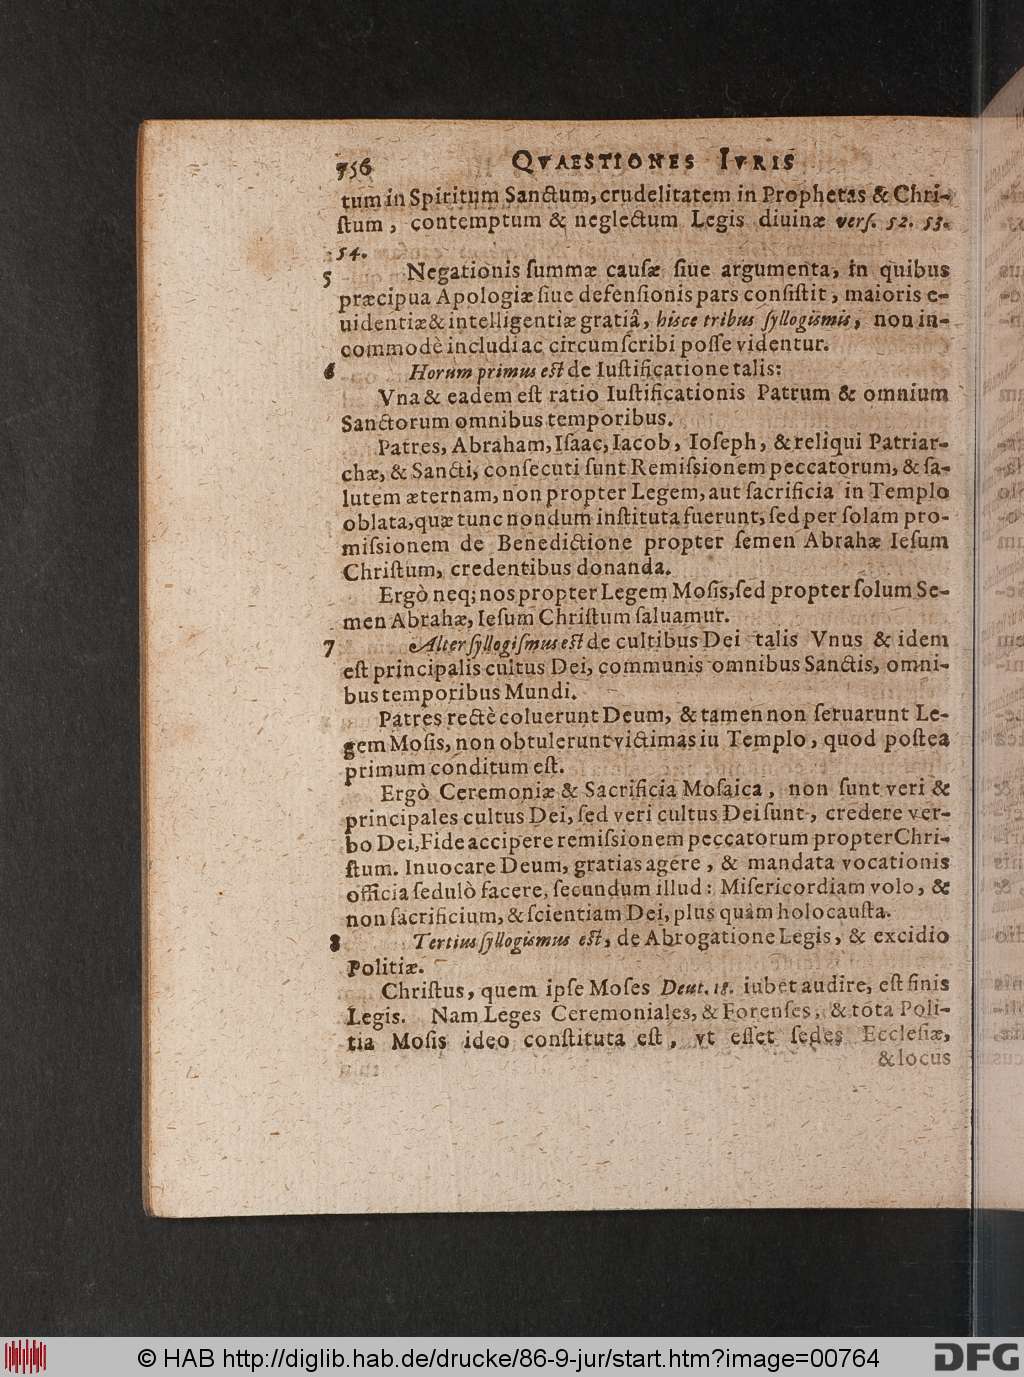 756 QVAESTIONES IVRIS
tum in Spiritum Sanctum, crudelitatem in Prophetas & Chri-
ſtum, contemptum & neglectum Legis diuinæ verſ. 52. 53.
54.
5 Negationis ſummæ cauſæ ſiue argumenta, in quibus
præcipua Apologiæ ſiue defenſionis pars conſiſtit, maioris e-
uidentiæ & intelligentiæ gratiâ, hisce tribus ſyllogismis, non in-
commodè includi ac circumſcribi poſſe videntur.
6 Horum primus est de Iuſtificatione talis:
Vna & eadem eſt ratio Iuſtificationis Patrum & omnium
Sanctorum omnibus temporibus.
Patres, Abraham, Iſaac, Iacob, Ioſeph, & reliqui Patriar-
chæ, & Sancti, conſecuti ſunt Remiſsionem peccatorum, & ſa-
lutem æternam, non propter Legem, aut ſacrificia in Templo
oblata, quæ tunc nondum inſtituta fuerunt, ſed per ſolam pro-
miſsionem de Benedictione propter ſemen Abrahæ Ieſum
Chriſtum, credentibus donanda.
Ergò neq; nos propter Legem Moſis, ſed propter ſolum Se-
men Abrahæ, Ieſum Chriſtum ſaluamur.
7 Alter ſyllogiſmus est de cultibus Dei talis Vnus & idem
eſt principalis cultus Dei, communis omnibus Sanctis, omni-
bus temporibus Mundi.
Patres rectè coluerunt Deum, & tamen non ſeruarunt Le-
gem Moſis, non obtulerunt victimas iu Templo, quod poſtea
primum conditum eſt.
Ergò Ceremoniæ & Sacrificia Moſaica, non ſunt veri &
principales cultus Dei, ſed veri cultus Dei ſunt, credere ver-
bo Dei, Fide accipere remiſsionem peccatorum propter Chri-
ſtum. Inuocare Deum, gratias agere, & mandata vocationis
officia ſedulò facere, ſecundum illud: Miſericordiam volo, &
non ſacrificium, & ſcientiam Dei, plus quàm holocauſta.
8 Tertius ſyllogismus est, de Abrogatione Legis, & excidio
Politiæ.
Chriſtus, quem ipſe Moſes Deut. 18. iubet audire, eſt finis
Legis. Nam Leges Ceremoniales, & Forenſes, & tota Poli-
tia Moſis ideo conſtituta eſt, vt eſſet ſedes Eccleſiæ,
& locus
© HAB http://diglib.hab.de/drucke/86-9-jur/start.htm?image=00764
DFG